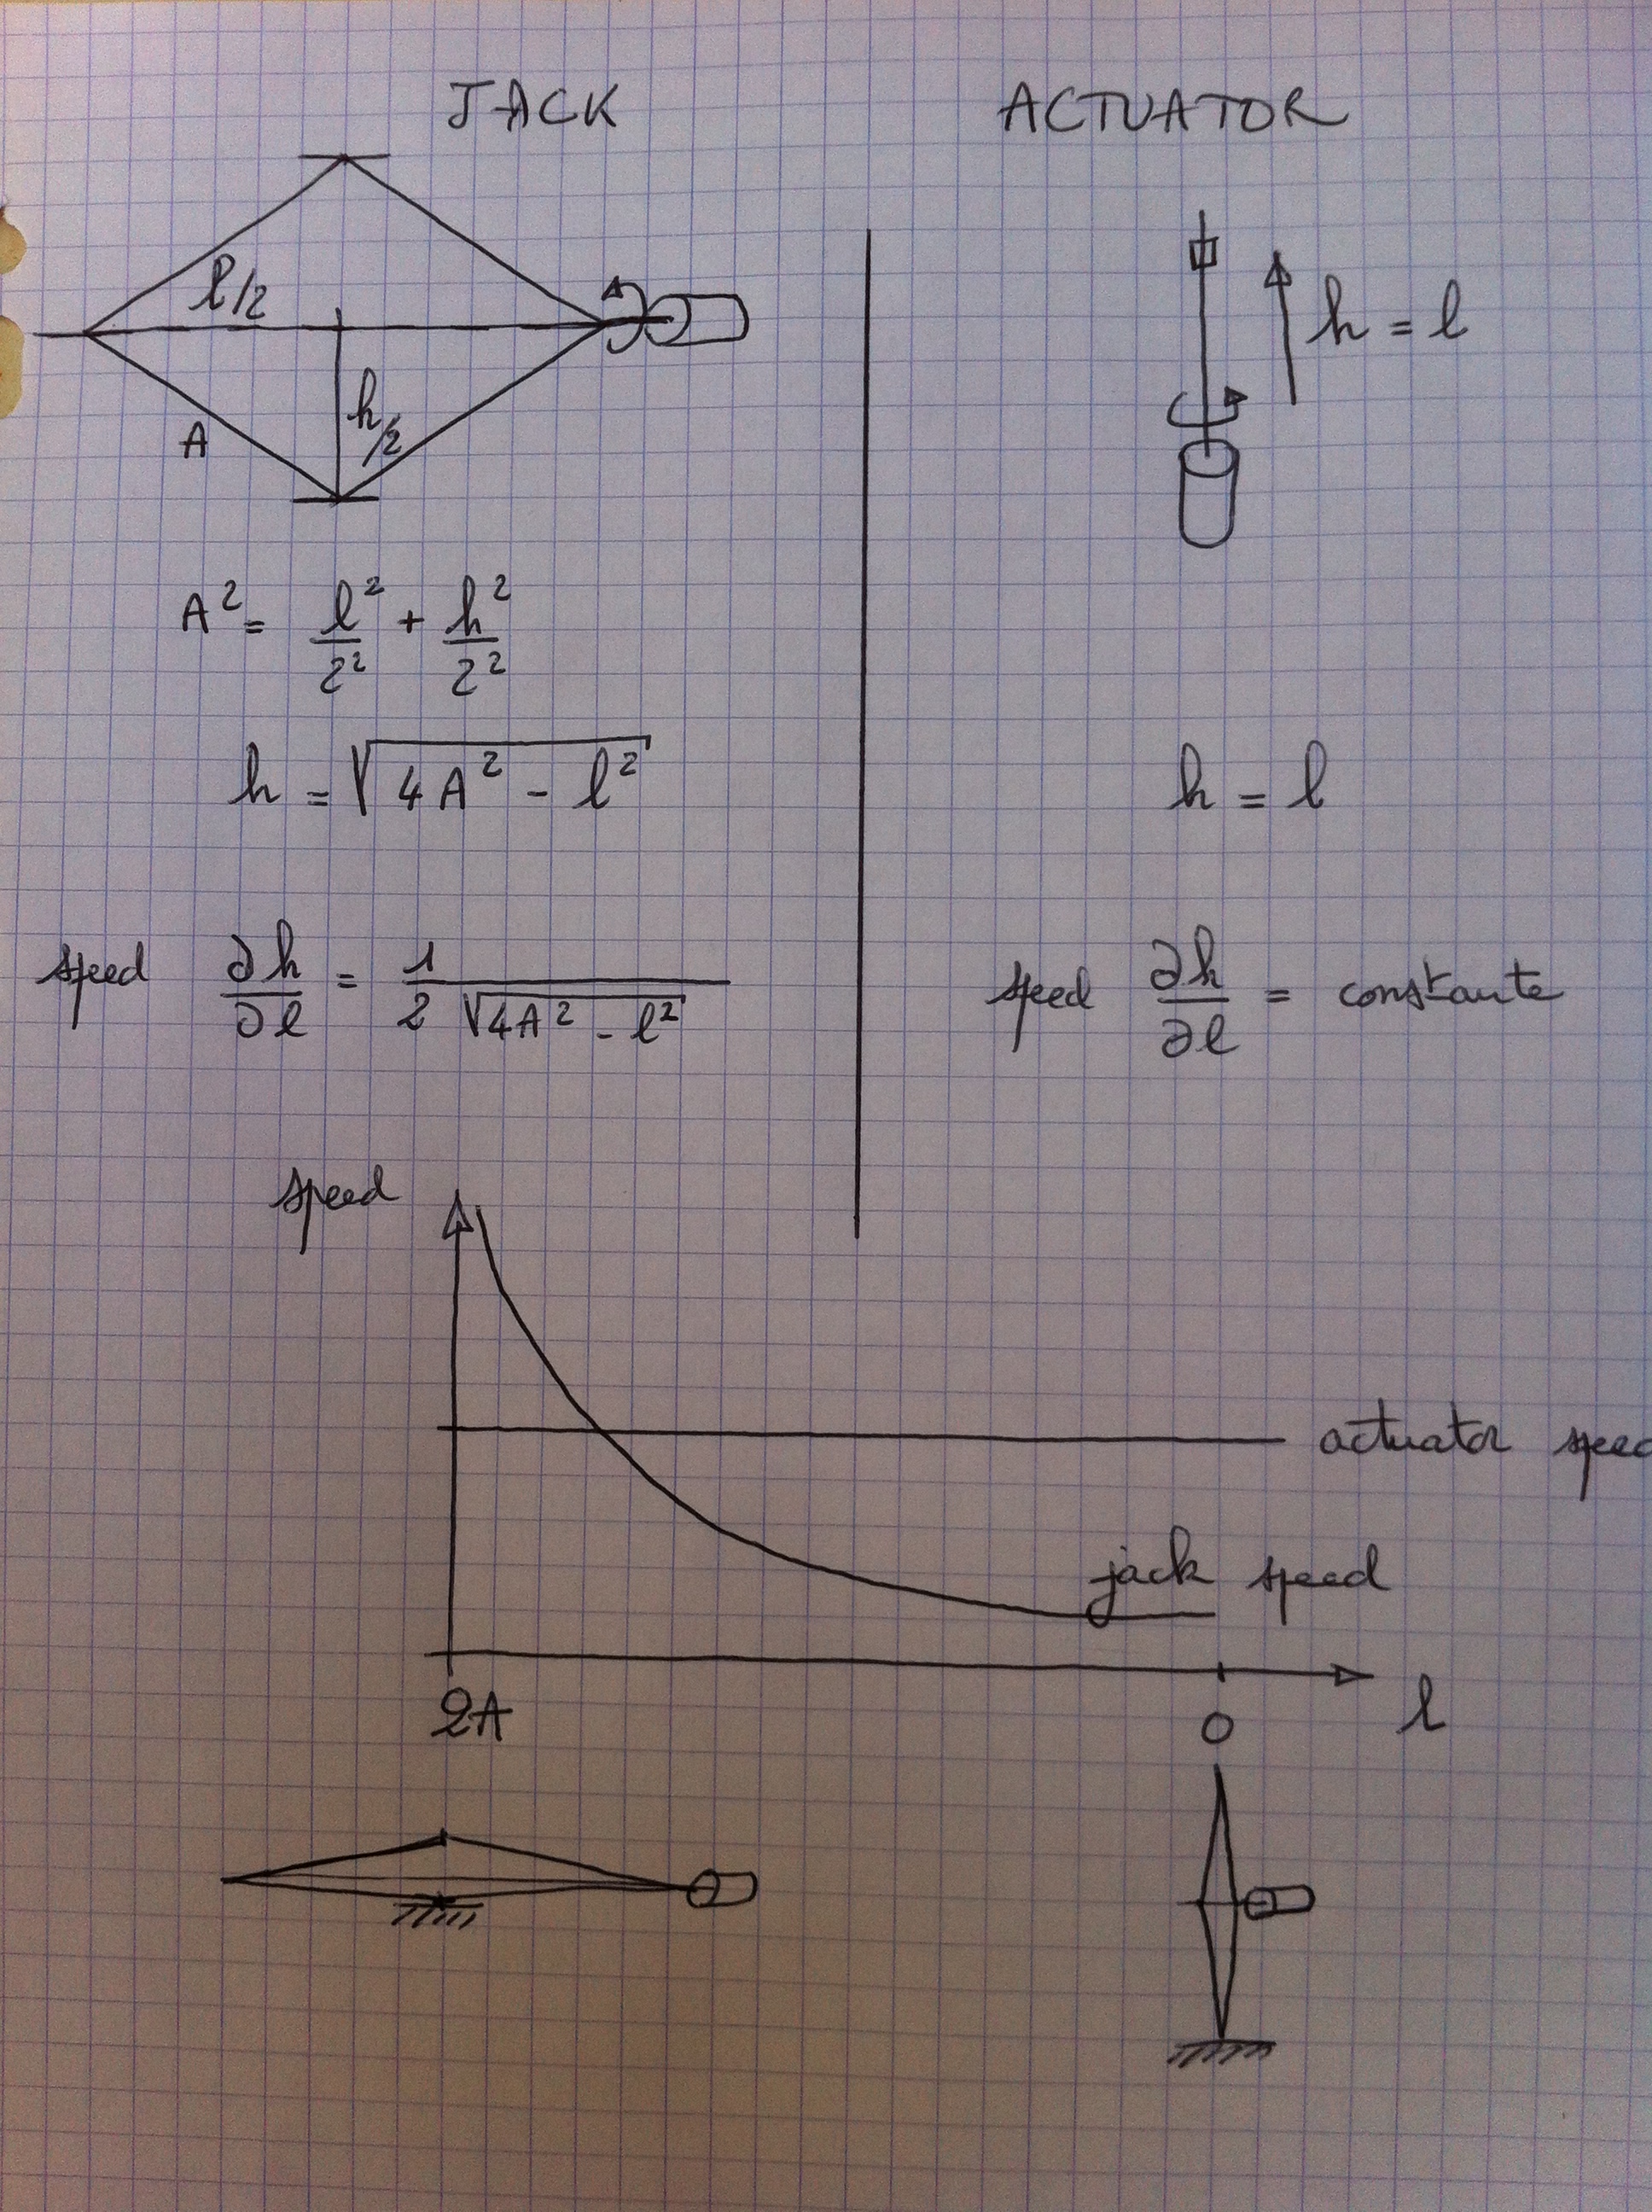 JACK
ACTUATOR
l/2
h/2
A
h = l
A² = l²/2² + h²/2²
h = √(4A² - l²)
h = l
speed ∂h/∂l = 1/(2√(4A² - l²))
speed ∂h/∂l = constante
speed
actuator
jack speed
2A
0
l